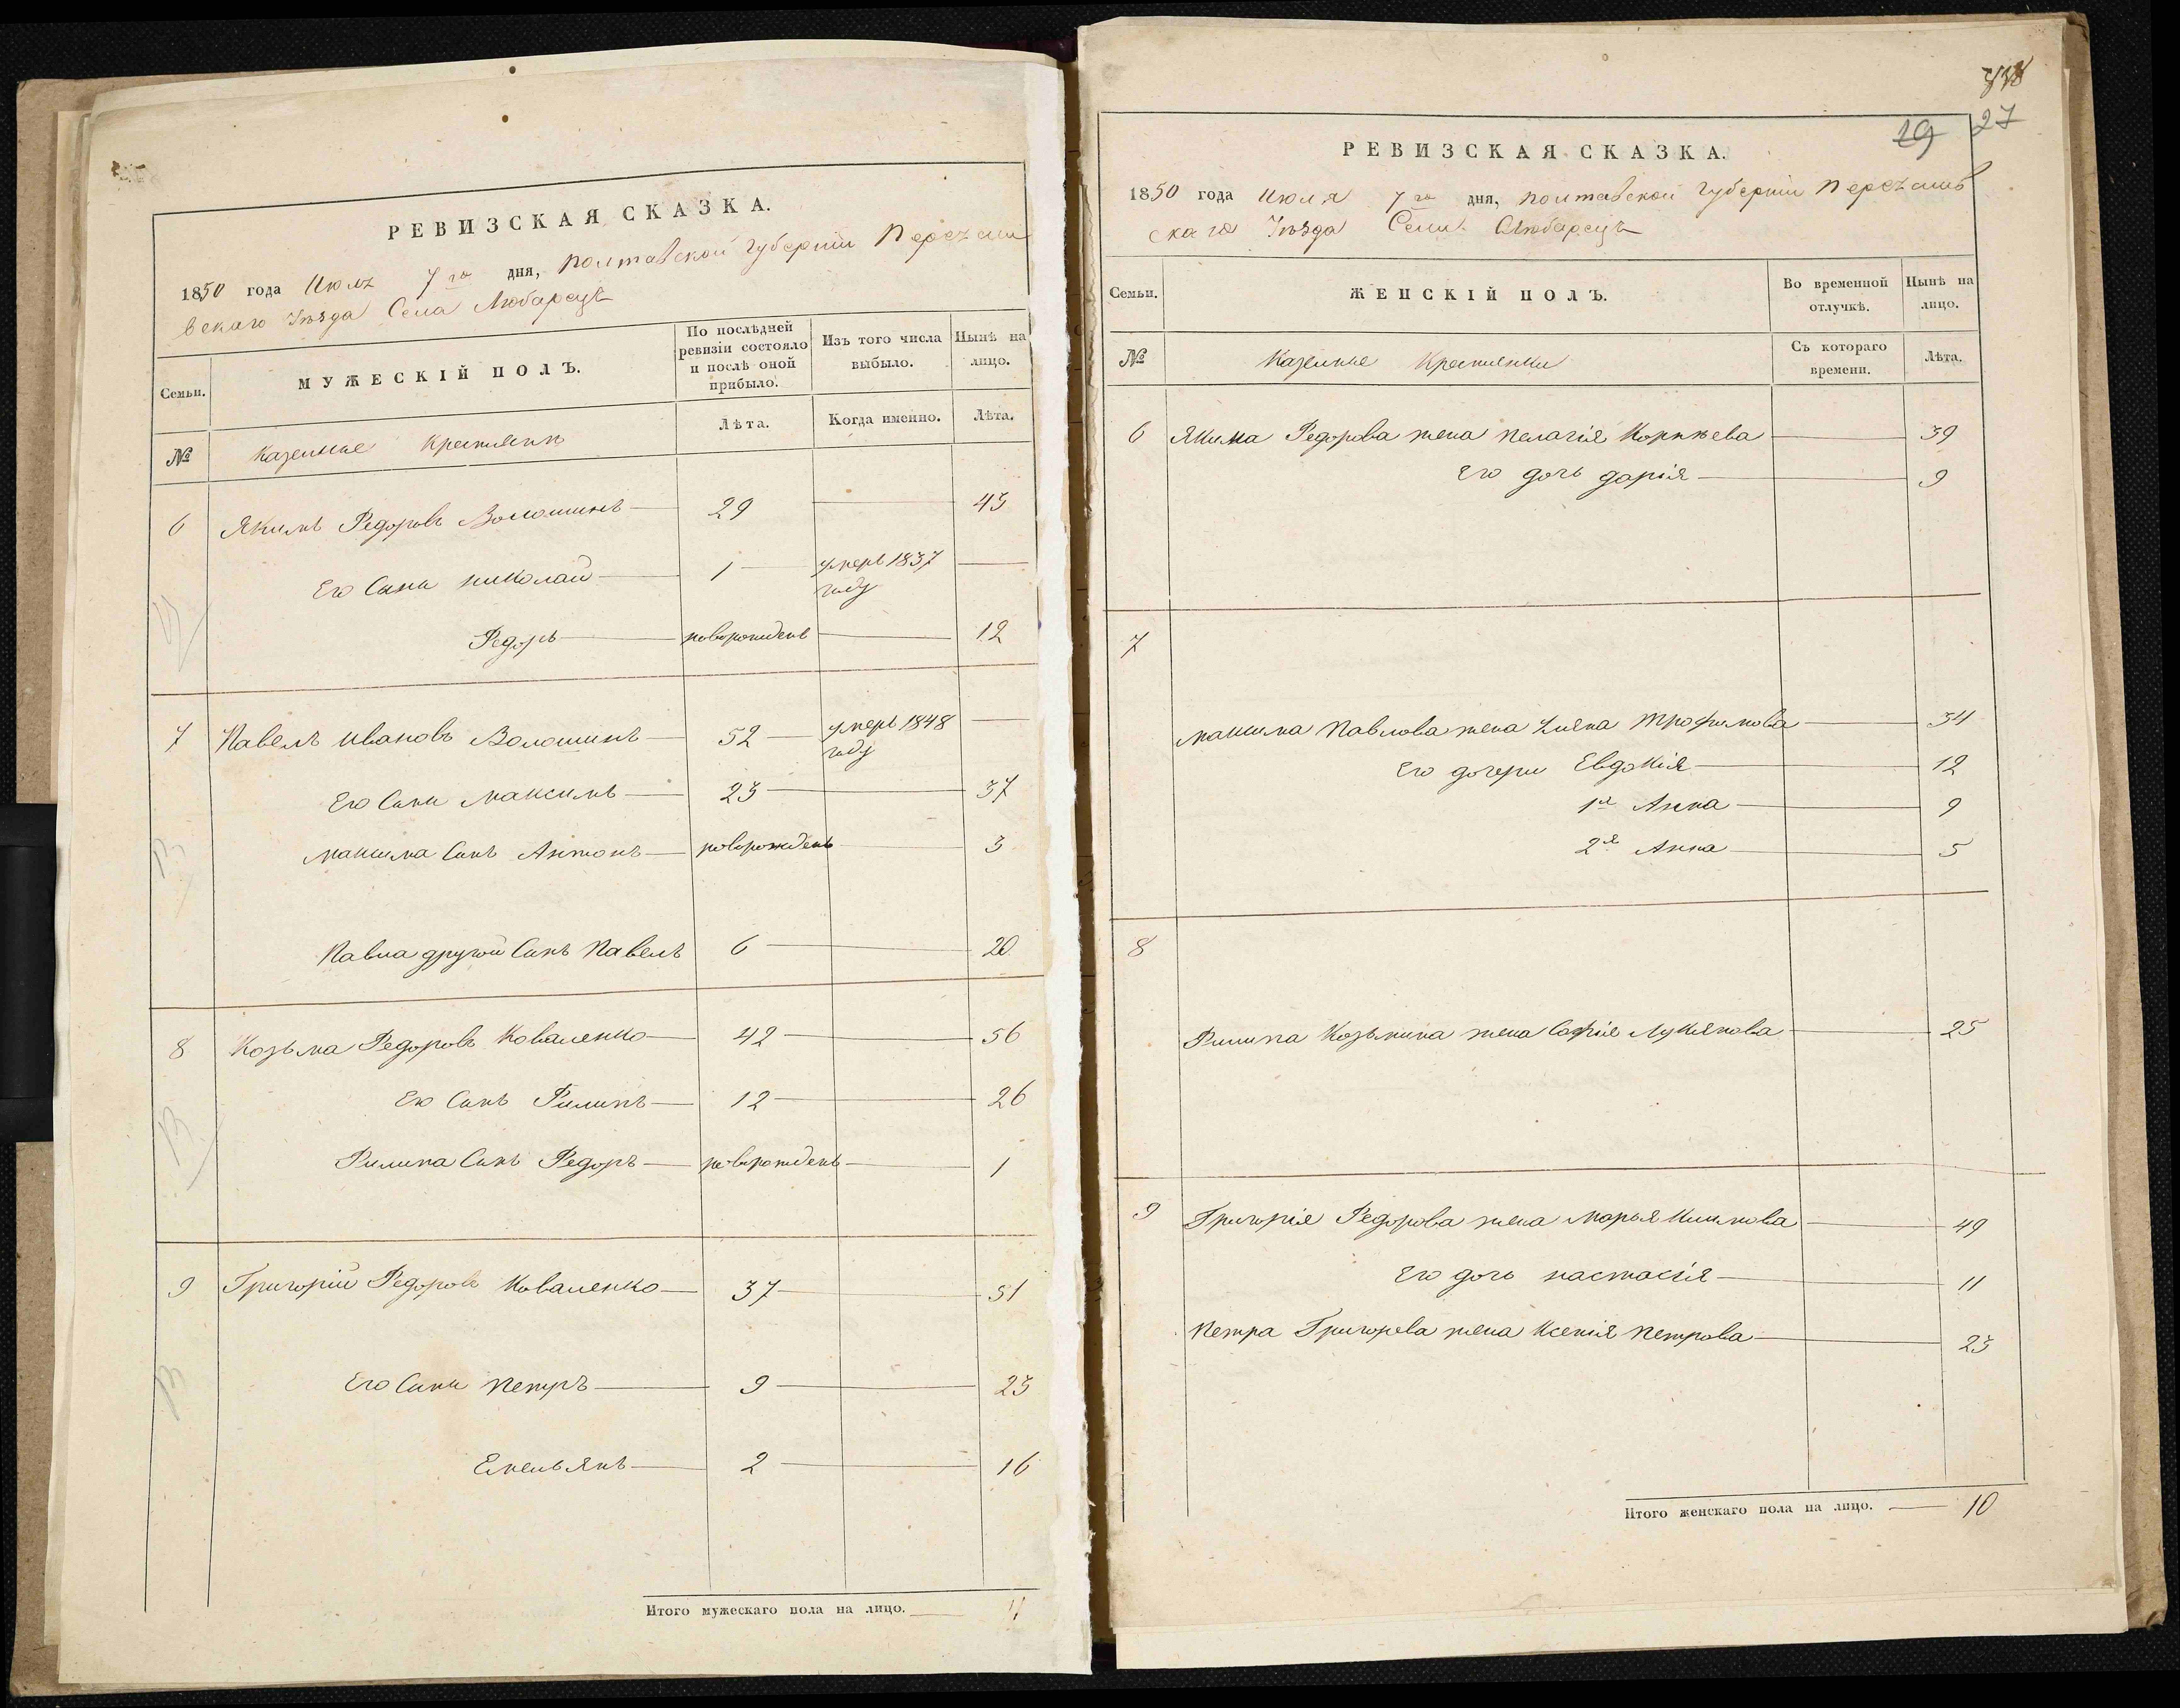 РЕВИЗСКАЯ СКАЗКА.
1850 года Июля 7го дня, Полтавской Губерніи Переяслав
скаго Уѣзда Села Любарецъ
Семьи. МУЖЕСКІЙ ПОЛЪ. По послѣдней ревизіи состояло и послѣ оной прибыло. Изъ того числа выбыло. Нынѣ на лицо.
№ Казенные Крестьяне Лѣта. Когда именно. Лѣта.
6 Якимъ Федоровъ Волошинъ 29 43
Его Сыны Николай 1 умеръ 1837 году
Федоръ новорожденъ 12
7 Павелъ Ивановъ Волошинъ 52 умеръ 1848 году
Его Сыны Максимъ 23 37
Максима Сынъ Антонъ новорожденъ 3
Павла другой Сынъ Павелъ 6 20
8 Козьма Федоровъ Коваленко 42 56
Его Сынъ Филипъ 12 26
Филипа Сынъ Федоръ новорожденъ 1
9 Григорій Федоровъ Коваленко 37 51
Его Сыны Петръ 9 23
Емельянъ 2 16
Итого мужескаго пола на лицо. 11
27
19
РЕВИЗСКАЯ СКАЗКА.
1850 года Июля 7го дня, Полтавской Губерніи Переяслав
скаго Уѣзда Села Любарецъ
Семьи. ЖЕНСКІЙ ПОЛЪ. Во временной отлучкѣ. Нынѣ на лицо.
№ Казенные Крестьянки Съ котораго времени. Лѣта.
6 Якима Федорова жена Пелагія Корнѣева 39
Его дочь Дарія 9
7
Максима Павлова жена Уляна Трофимова 34
Его дочери Евдокія 12
1я Анна 9
2я Анна 5
8
Филипа Козьмина жена Софія Лукянова 25
9 Григорія Федорова жена Марья Климова 49
Его дочь Настасія 11
Петра Григорева жена Ксенія Петрова 23
Итого женскаго пола на лицо. 10